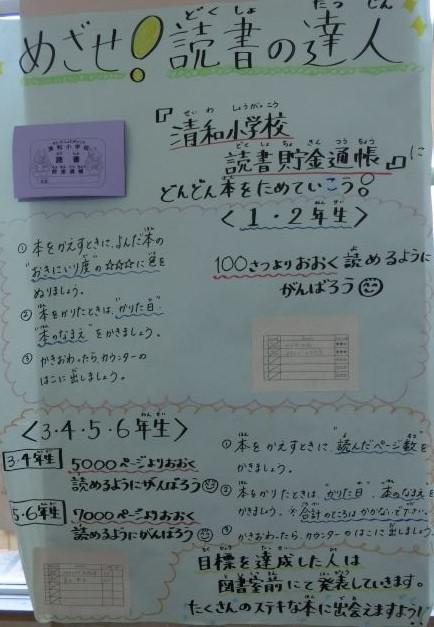 めざせ!読書の達人
『清和小学校
読書貯金通帳』に
どんどん本をためていこう!
清和小学校
読書
貯金通帳
<1・2年生>
①本をかえすときに、よんだ本の
"おきにいり度"の☆☆☆に色を
ぬりましょう。
②本をかりたときは、"かりた日"、
"本のなまえ"をかきましょう。
③かきおわったら、カウンターの
はこに出しましょう。
100さつよりおおく読めるように
がんばろう
<3・4・5・6年生>
3・4年生 5000ページよりおおく
読めるようにがんばろう
5・6年生 7000ページよりおおく
読めるようにがんばろう
①本をかえすときに、"読んだページ数"を
かきましょう。
②本をかりたときは、"かりた日"、"本のなまえ"を
かきましょう。※合計のところはかかないで下さい。
③かきおわったら、カウンターのはこに出しましょう。
目標を達成した人は
図書室前にて発表していきます。
たくさんのステキな本に出会えますように!!